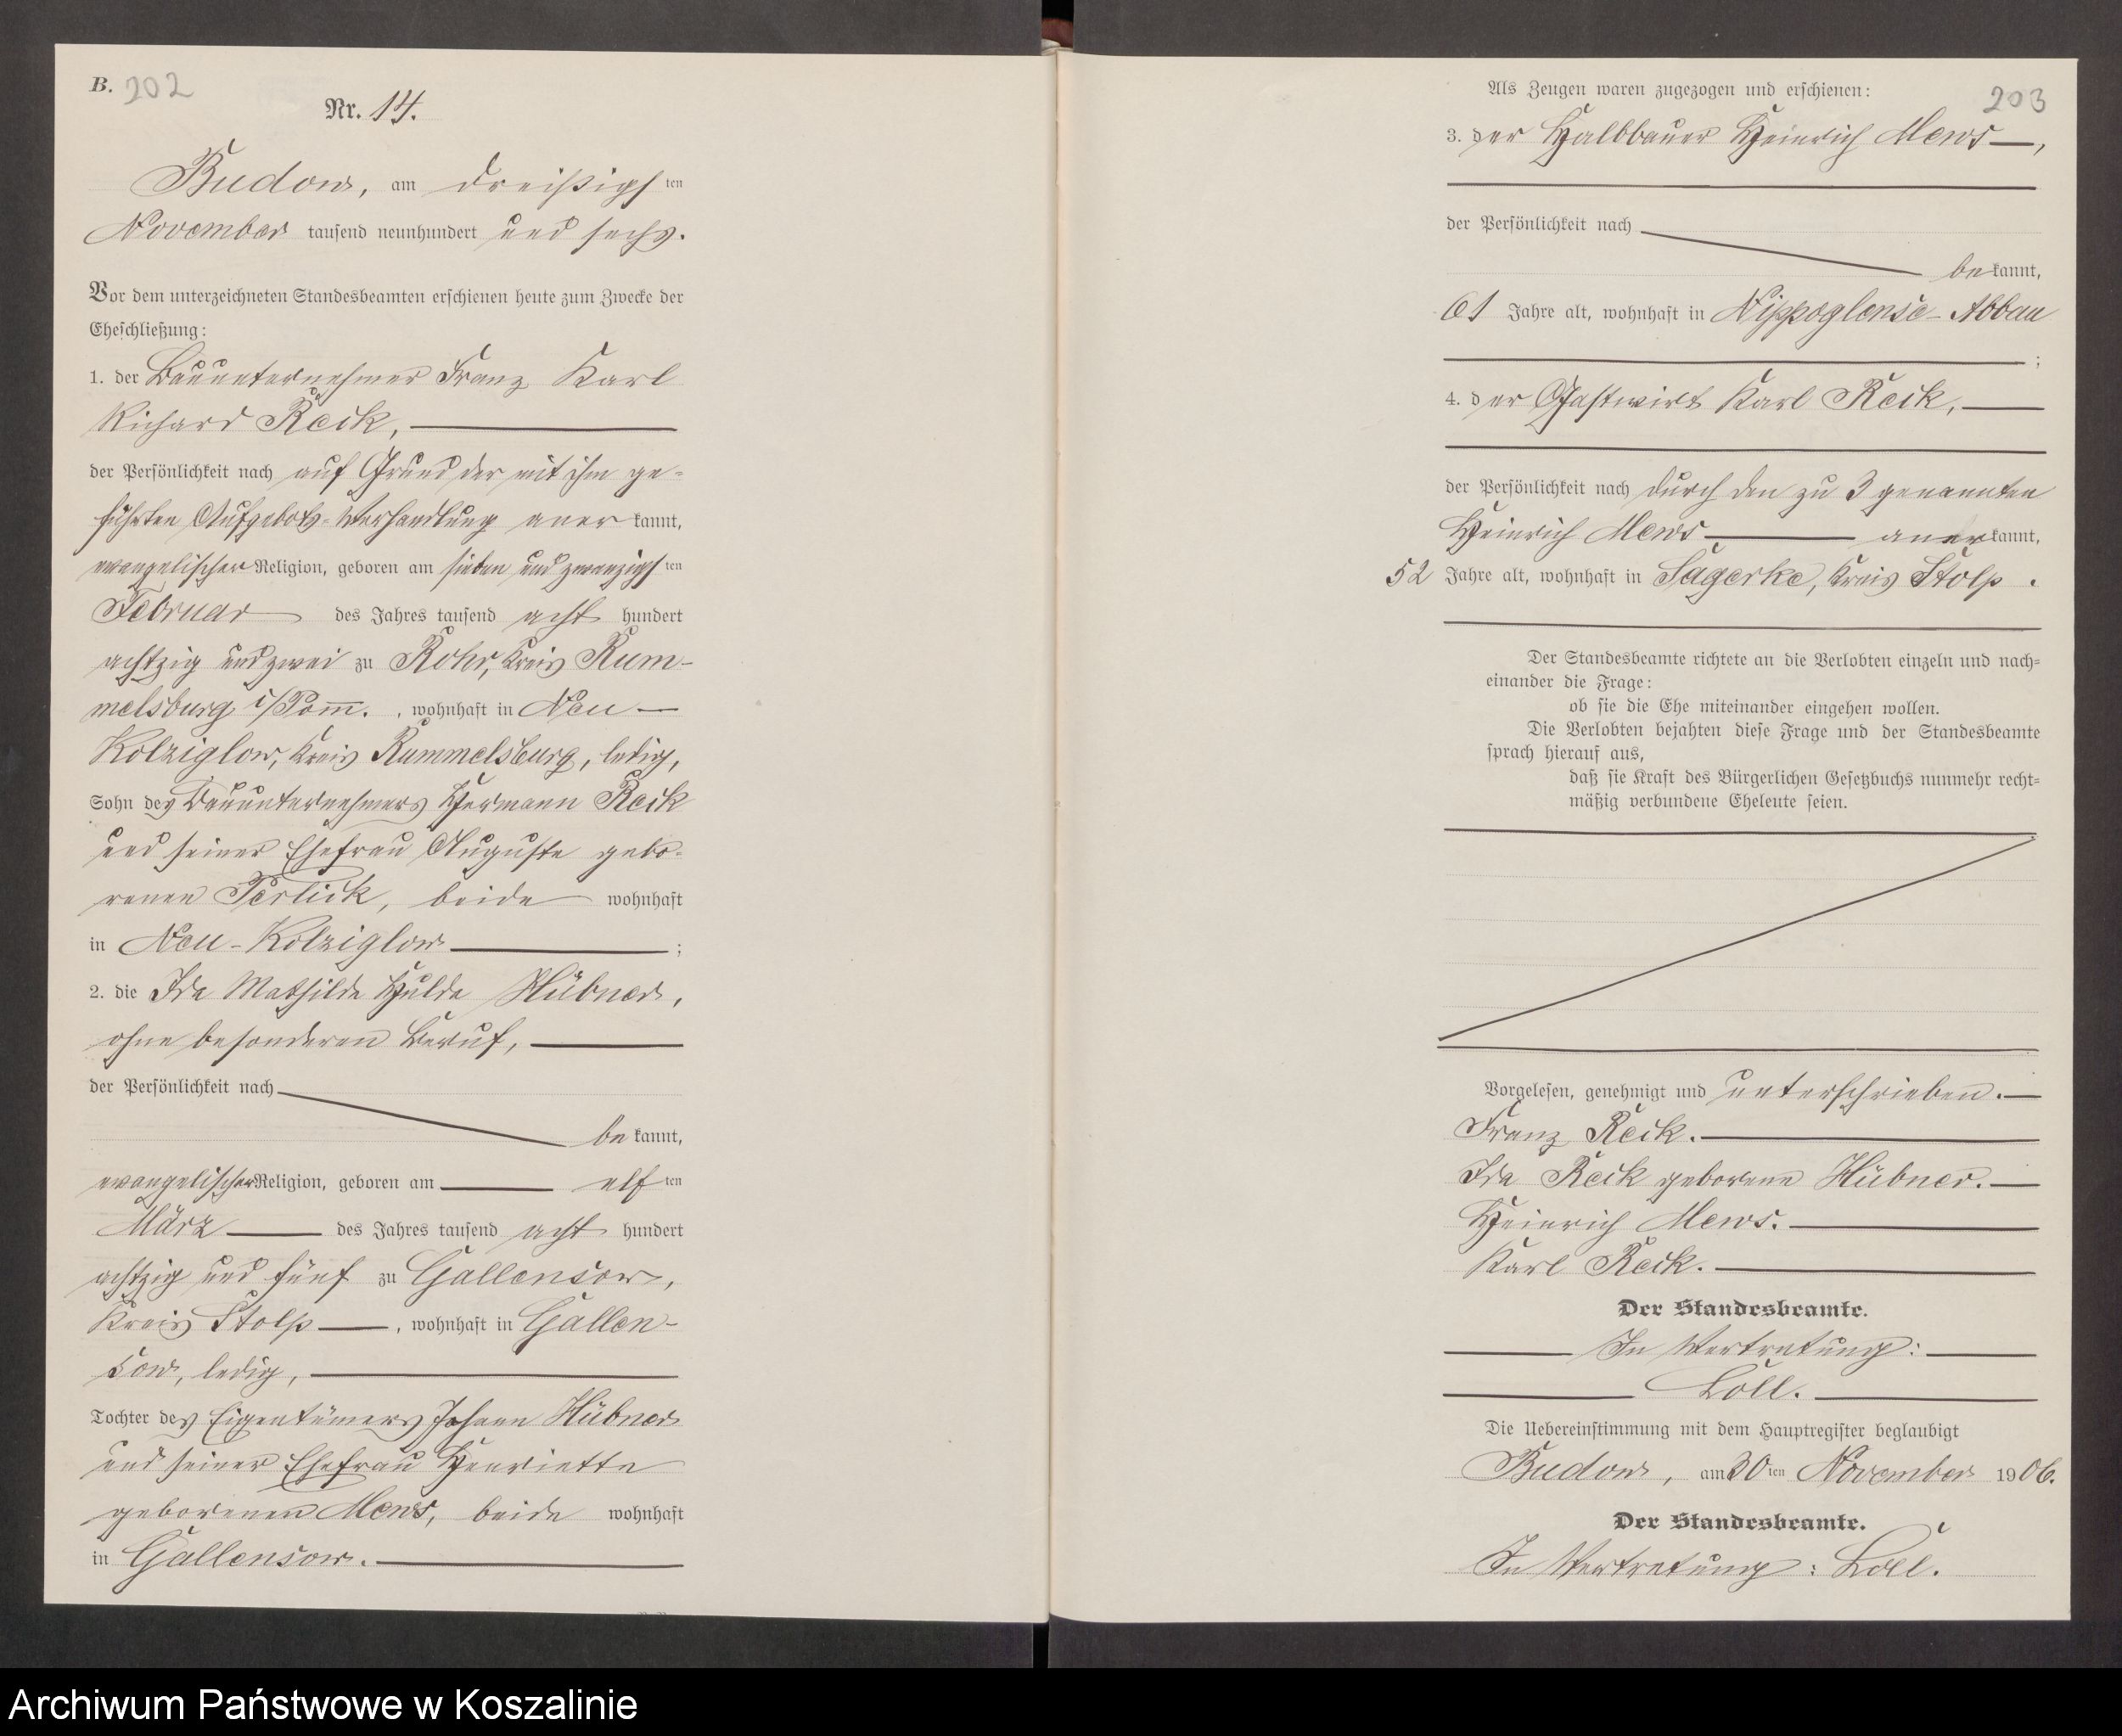 B. 202
Nr. 14.
Budow, am dreißigsten
November tausend neunhundert und sechs.
Vor dem unterzeichneten Standesbeamten erschienen heute zum Zwecke der
Eheschließung:
1. der Bauunternehmer Franz Karl
Richard Reck,
der Persönlichkeit nach auf Grund der mit ihm ge-
führten Aufgebots-Verhandlung anerkannt,
evangelischer Religion, geboren am sieben und zwanzigsten
Februar des Jahres tausend acht hundert
achtzig und zwei zu Rohr, Kreis Rum-
melsburg i/Pom̄., wohnhaft in Neu-
Kolziglow, Kreis Rummelsburg, ledig,
Sohn des Bauunternehmers Hermann Reck
und seiner Ehefrau Auguste gebo-
renen Perlick, beide wohnhaft
in Neu-Kolziglow;
2. die Ida Mathilde Hulda Hübner,
ohne besonderen Beruf,
der Persönlichkeit nach
bekannt,
evangelischer Religion, geboren am elften
März des Jahres tausend acht hundert
achtzig und fünf zu Gallensow,
Kreis Stolp, wohnhaft in Gallen-
sow, ledig,
Tochter des Eigentümers Johann Hübner
und seiner Ehefrau Henriette
geborenen Mews, beide wohnhaft
in Gallensow.
203
Als Zeugen waren zugezogen und erschienen:
3. der Halbbauer Heinrich Mews,
der Persönlichkeit nach
bekannt,
61 Jahre alt, wohnhaft in Nippoglense-Abbau
;
4. der Gastwirt Karl Reck,
der Persönlichkeit nach durch den zu 3 genannten
Heinrich Mews anerkannt,
52 Jahre alt, wohnhaft in Sagerke, Kreis Stolp.
Der Standesbeamte richtete an die Verlobten einzeln und nach-
einander die Frage:
ob sie die Ehe miteinander eingehen wollen.
Die Verlobten bejahten diese Frage und der Standesbeamte
sprach hierauf aus,
daß sie Kraft des Bürgerlichen Gesetzbuchs nunmehr recht-
mäßig verbundene Eheleute seien.
Vorgelesen, genehmigt und unterschrieben.
Franz Reck.
Ida Reck geborene Hübner.
Heinrich Mews.
Karl Reck.
Der Standesbeamte.
In Vertretung:
Loll.
Die Uebereinstimmung mit dem Hauptregister beglaubigt
Budow, am 30ten November 1906.
Der Standesbeamte.
In Vertretung: Loll.
Archiwum Państwowe w Koszalinie